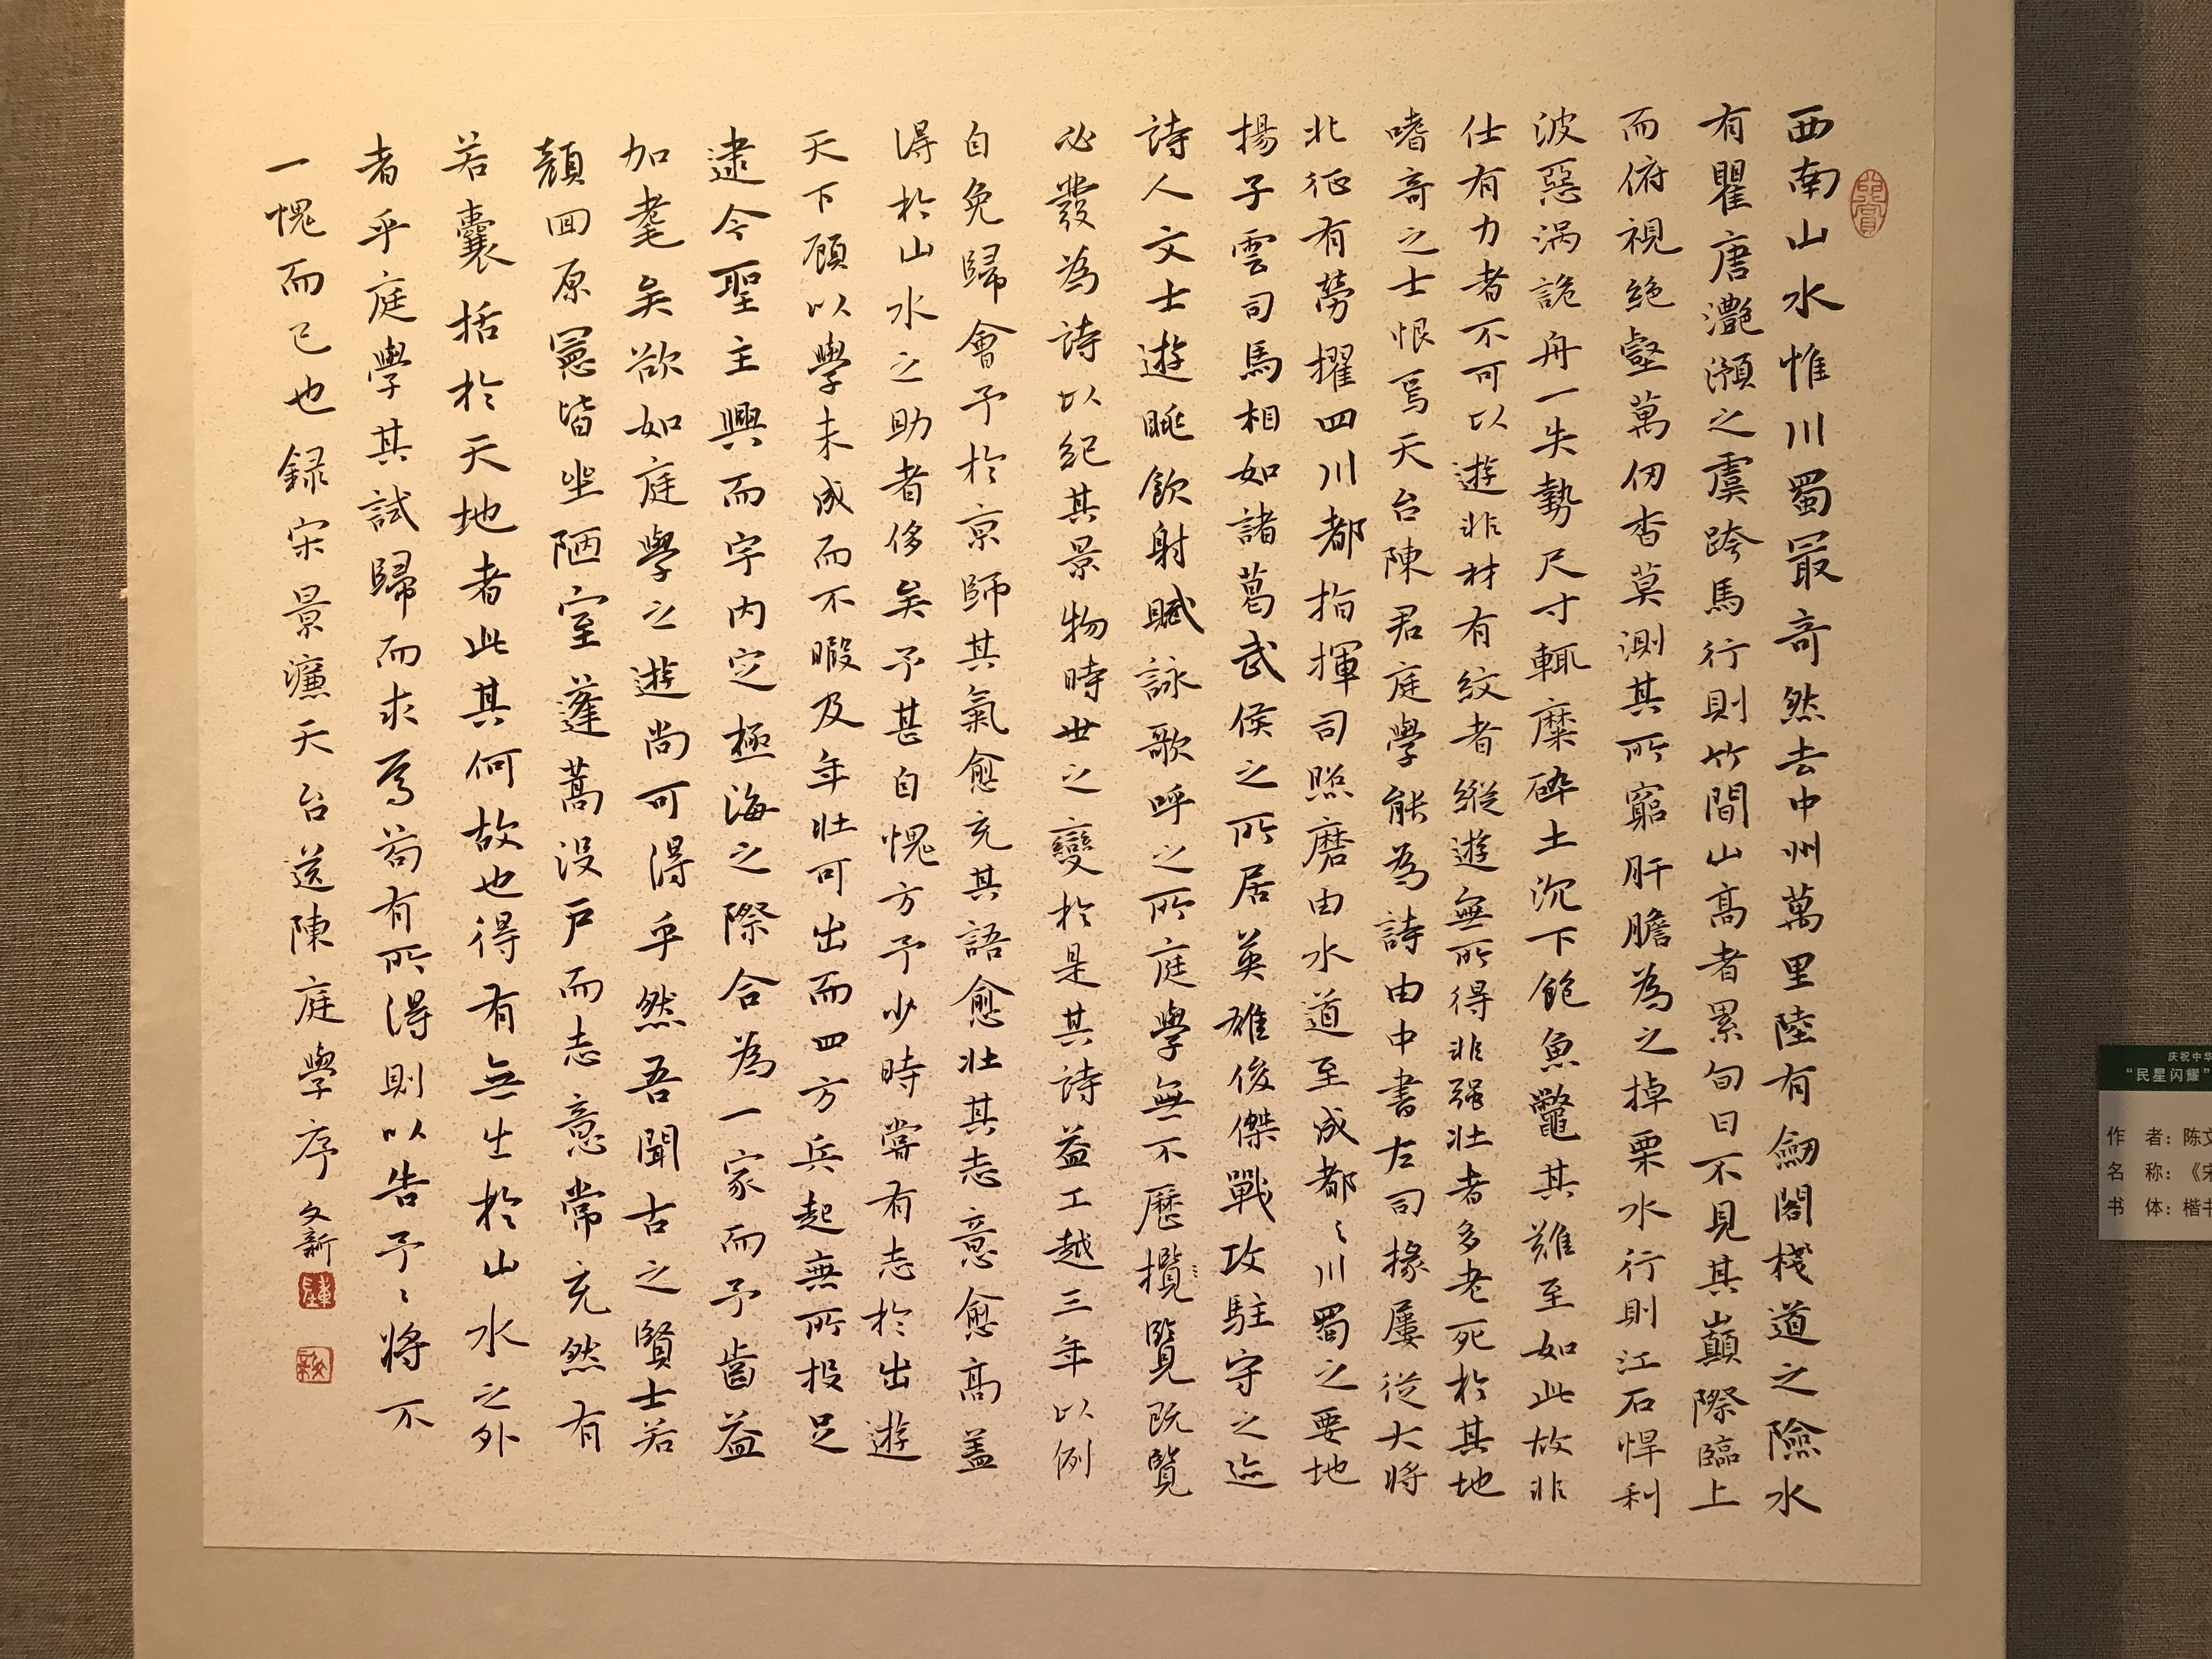 西南山水惟川蜀最奇然去中州萬里陸有劒閣棧道之險水
有瞿唐灔澦之虞跨馬行則竹間山高者累旬日不見其巔際臨上
而俯視絶壑萬仞杳莫測其所窮肝膽為之掉栗水行則江石悍利
波惡渦詭舟一失勢尺寸輒糜碎土沉下飽魚鼈其難至如此故非
仕有力者不可以遊非材有紋者縱遊無所得非强壯者多老死於其地
嗜奇之士恨焉天台陳君庭學能為詩由中書左司掾屢從大將
北征有勞擢四川都指揮司照磨由水道至成都〻川蜀之要地
揚子雲司馬相如諸葛武侯之所居英雄俊傑戰攻駐守之迹
詩人文士遊眺飲射賦詠歌呼之所庭學無不歷攬〻覽既覽
必發為詩以紀其景物時世之變於是其詩益工越三年以例
自免歸會予於京師其氣愈充其語愈壯其志意愈高蓋
得於山水之助者侈矣予甚自愧方予少時嘗有志於出遊
天下顧以學未成而不暇及年壯可出而四方兵起無所投足
逮今聖主興而宇内定極海之際合為一家而予齒益
加耄矣欲如庭學之遊尚可得乎然吾聞古之賢士若
顏回原憲皆坐陋室蓬蒿没戶而志意常充然有
若囊括於天地者此其何故也得有無出於山水之外
者乎庭學其試歸而求焉苟有所得則以告予〻將不
一愧而已也録宋景濂天台送陳庭學序 文新
庆祝中华
“民星闪耀”
作 者：陈文
名 称：《宋
书 体：楷书